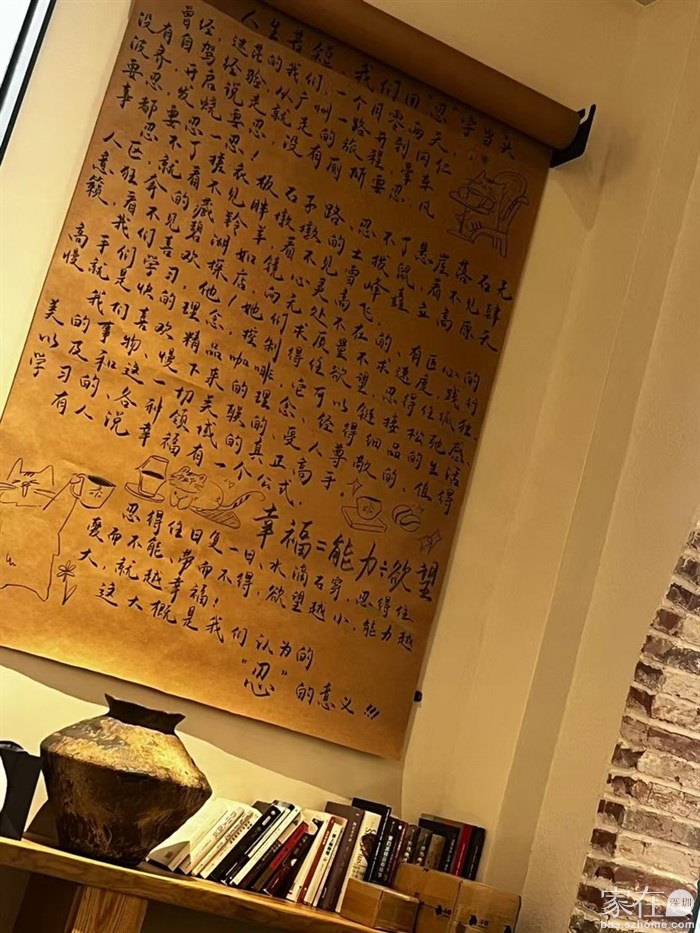 人生苦短,我们用“忍”字当头
曾经,迷茫的我们,一个月零两天,
没有自驾经验,从广州一路开到冈仁
波齐,开启说走就走的旅程,晕车
要忍,发烧要忍,没有厕所要忍,风
事都要忍一忍!
忍不了搓衣板石子路、忍不了悬崖落石无
人区,就看不见胖墩墩的土拨鼠,看不见肆
意狂奔的藏羚羊,看不见雪峰矗立高原天
籁,看不见碧湖如镜心灵高飞。
我们喜欢探店!向无处不在的、有匠心的
高手们学习,他她们求质量不求速度,践行
慢就是快的理念,控制得住欲望,忍得住孤独。
我们喜欢慢下来的咖啡,它可以链接松弛感、
美的事物、精品的理念、经得细品的生活
以及和这一切关联的、受人尊敬的、值得
学习的、各种领域的真正高手。
有人说幸福有一个公式。
幸福=能力÷欲望
忍得住日复一日、水滴石穿,忍得住
爱而不能、带而不得,欲望越小,能力越
大,就越幸福!
这大概是我们认为的
“忍”的意义!!!
家在深圳
bbs.szhome.com